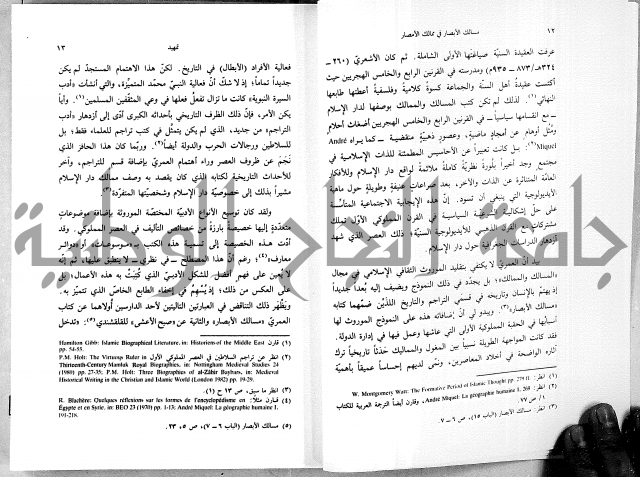 ١٢
مسالك الأبصار في ممالك الأمصار
عرفت العقيدة السنيّة صياغتها الأولى الشاملة. ثم كان الأشعريّ (٢٦٠ ـ
٣٢٤هـ/٨٧٣ ـ ٩٣٥م) ومدرسته في القرنين الرابع والخامس الهجريين حيث
أكسبت عقيدة أهل السنّة والجماعة كسوةً كلامية وفلسفيةً أعطتها طابعها
النهائي(١). لذلك لم تكن كتب المسالك والممالك بوصفها لدار الإسلام
ـ مع انقسامها سياسياً ـ في القرنين الرابع والخامس الهجريين أضغاث أحلام
ومُثُل أوهام عن أمجادٍ ماضيةٍ، وعصورٍ ذهبيةٍ منقضيةٍ ـ كما يراه André
Miquel(٢)؛ بل كانت تعبيراً عن الأحاسيس المطمئنة للذات الإسلامية في
مجتمعٍ وجد أخيراً بلورة نظريّة كاملة ملائمةً لواقع دار الإسلام وللأفكار
العامّة المتناثرة عن الذات والآخر، بعد صراعات عنيفةٍ وطويلةٍ حول ماهية
الأيديولوجية التي ينبغي أن تسود. إنّ هذه الإيجابية الاجتماعية المتأسّسة
على حلّ إشكالية الشرعية السياسية في القرن المملوكي الأول تملك
مشتركات مع القرن الذهبي للأيديولوجية السنية؛ ذلك العصر الذي شهد
ازدهار الدراسات الجغرافية حول دار الإسلام.
بيد أنّ العمريّ لا يكتفي بتقليد الموروث الثقافي الإسلامي في مجال
«المسالك والممالك»؛ بل يجدّد في ذلك النموذج ويضيف إليه بعداً جديداً
إذ يهتمّ بالإنسان وتاريخه في قسمي التراجم والتاريخ اللذَين ضمّهما كتابه
«مسالك الأبصار»(٣). ويبدو لي أنّ إضافاته هذه على النموذج الموروث لها
أسبابها في الحقبة المملوكية الأولى التي عاشها وعمل فيها في إدارة الدولة.
فقد كانت المواجهة الطويلة نسبياً بين المغول والمماليك حَدَثاً تاريخياً ترك
آثاره الواضحة في أخلاد المعاصرين، ونمّى لديهم إحساساً عميقاً بأهميّة
(١) انظر: W. Montgomery Watt: The Formative Period of Islamic Thought pp. 279 ff.
(٢) انظر: André Miquel: La géographie humaine 1. 269، وقارن أيضاً الترجمة العربية للكتاب
١/ص ٧٧.
(٣) انظر: مسالك الأبصار (الباب ١٥)، ص ٦ ـ ٧.
تمهيد
١٣
فعالية الأفراد (الأبطال) في التاريخ. لكنّ هذا الاهتمام المستجدّ لم يكن
جديداً تماماً؛ إذ لا شكّ أنّ فعالية النبيّ محمّد المتميّزة، والتي أنشأت «أدب
السيرة النبوية» كانت ما تزال تفعل فعلها في وعي المثقّفين المسلمين(١). وأياً
يكن الأمر، فإنّ ذلك الظرف التاريخيّ بأحداثه الكبرى أدّى إلى ازدهار «أدب
التراجم» من جديد، الذي لم يكن يتمثّل في كتب تراجم للعلماء فقط؛ بل
للسلاطين ورجالات الحرب والدولة أيضاً(٢). وربّما كان هذا الحافز الذي
نَجَمَ عن ظروف العصر وراء اهتمام العمريّ بإضافة قسم للتراجم، وآخر
للأحداث التاريخية لكتابه الذي كان يقصد به وصف ممالك دار الإسلام
مشيراً بذلك إلى خصوصيّة دار الإسلام وشخصيّتها المتفرّدة(٣).
ولقد كان توسيع الأنواع الأدبيّة المختصّة الموروثة بإضافة موضوعاتٍ
متعدّدةٍ إليها خصيصةً بارزةً من خصائص التأليف في العصر المملوكي. وقد
أدّت هذه الخصيصة إلى تسمية هذه الكتب بـ«موسوعات» أو «دوائر
معارف»(٤)، رغم أنّ هذا المصطلح ـ في نظري ـ لا ينطبق عليها؛ ثم إنّه
لا يُعين على فهم أفضل للشكل الأدبيّ الذي كُتِبَتْ به هذه الأعمال؛ بل
على العكس من ذلك؛ إذ يُسْهِمُ في إخفاء الطابع الخاصّ الذي تتميّز به.
ويَظْهَر ذلك التناقض في العبارتين التاليتين لأحد الدارسين أولاهما عن كتاب
العمريّ «مسالك الأبصار» والثانية عن «صبح الأعشى» للقلقشندي(٥): «تدخل
(١) قارن Hamilton Gibb: Islamic Biographical Literature, in: Historians of the Middle East
pp. 54-55.
(٢) انظر عن تراجم السلاطين في العصر المملوكي الأول P.M. Holt: The Virtuous Ruler in
Thirteenth-Century Mamluk Royal Biographies, in: Nottingham Medieval Studies 24
(1980) pp. 27-35; P.M. Holt: Three Biographies of al-Zâhir Baybars, in: Medieval
Historical Writing in the Christian and Islamic World (London 1982) pp. 19-29.
(٣) انظر ما سبق، ص ١٢ ح (١).
(٤) قارن مثلاً: R. Blachère: Quelques réflexions sur les formes de l'encyclopédisme en
Égypte et en Syrie, in: BEO 23 (1970) pp. 1-13; André Miquel: La géographie humaine 1.
191-218.
(٥) مسالك الأبصار (الباب ٦ ـ ٧)، ص ٥، ٢٣.